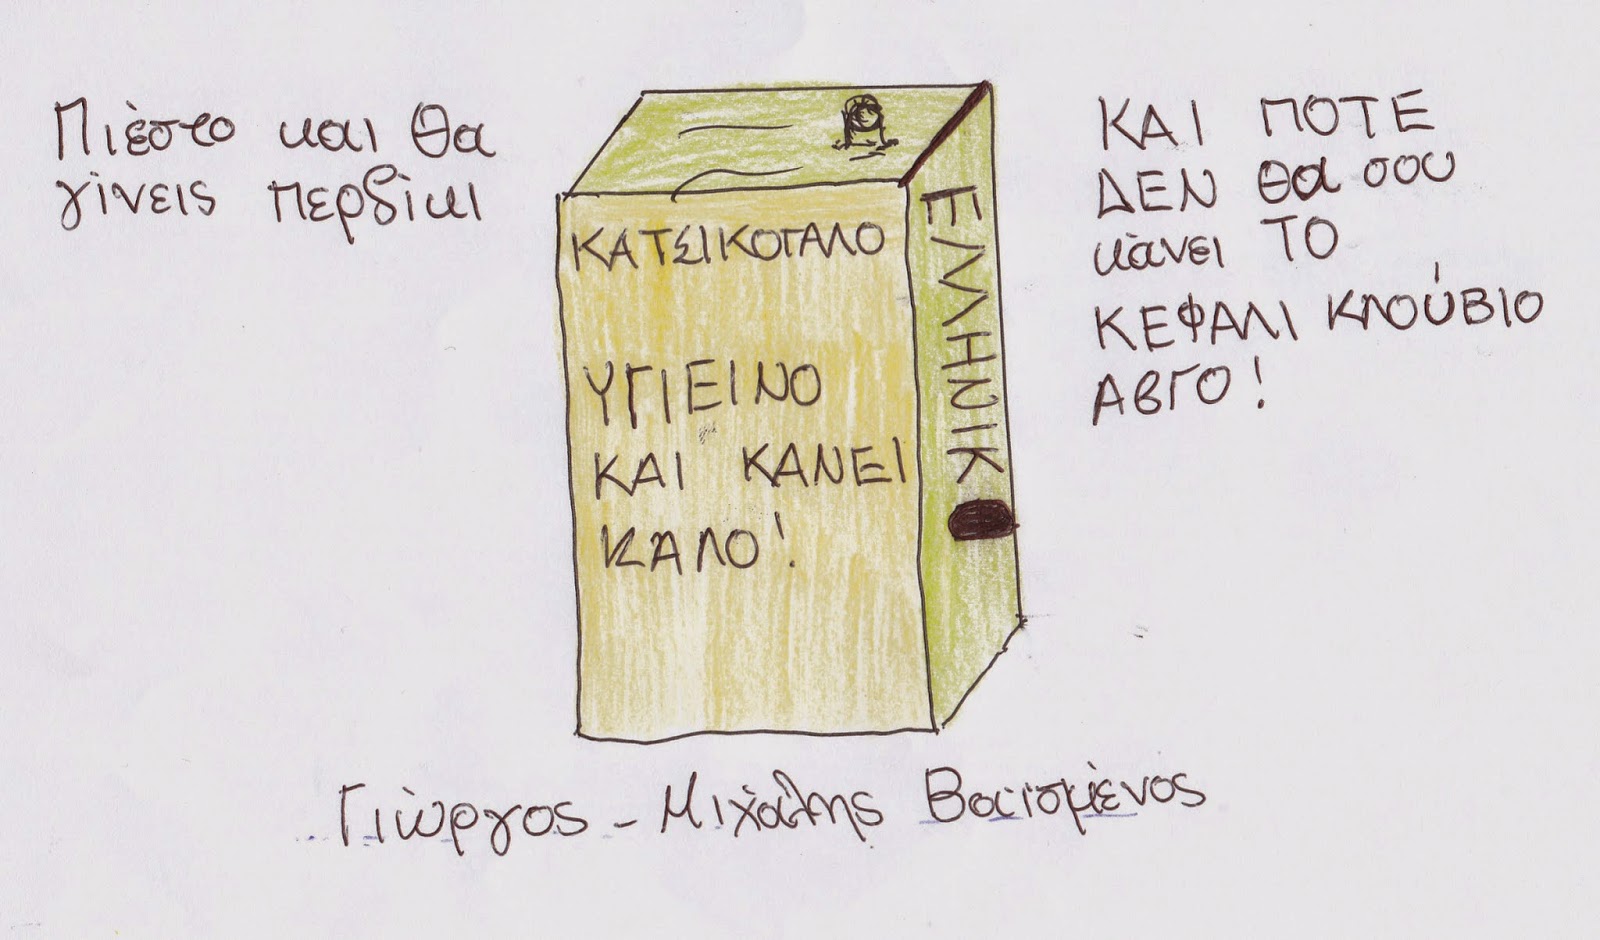 Πιέστο και θα
γίνεις περδίκι
ΚΑΤΣΙΚΟΓΑΛΟ
ΥΓΙΕΙΝΟ
ΚΑΙ ΚΑΝΕΙ
ΚΑΛΟ!
ΕΛΛΗΝΙΚ
ΚΑΙ ΠΟΤΕ
ΔΕΝ θα σου
κάνει ΤΟ
ΚΕΦΑΛΙ ΚΛΟΎΒΙΟ
ΑΒΓΟ!
Γιώργος - Μιχάλης Βαϊσμένος